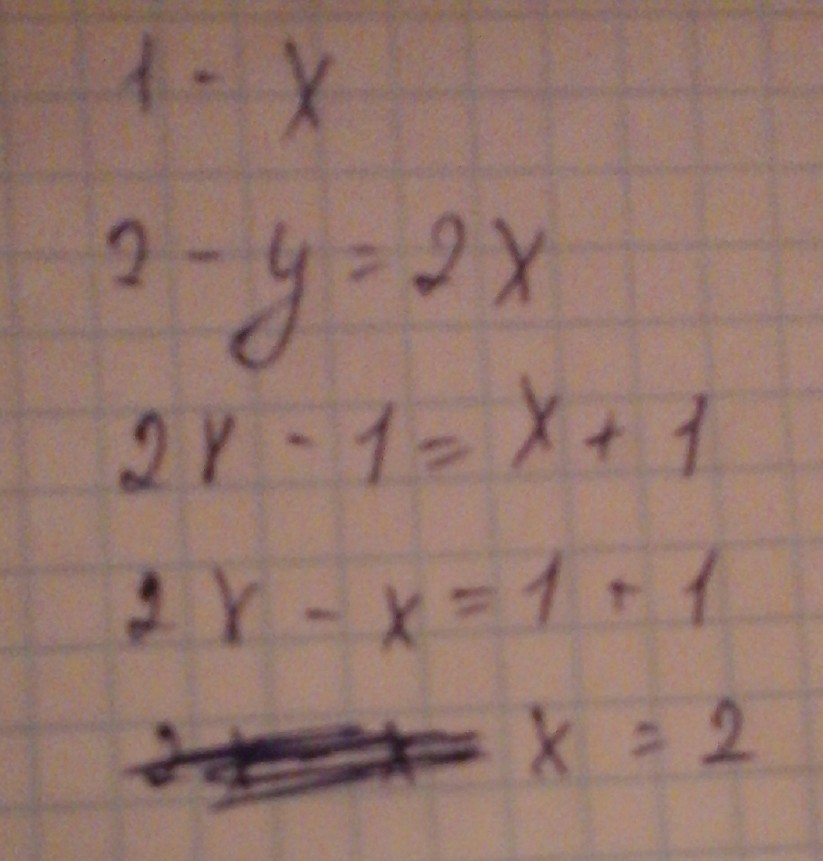 1 - x
2 - y = 2x
2x - 1 = x + 1
2x - x = 1 + 1
x = 2